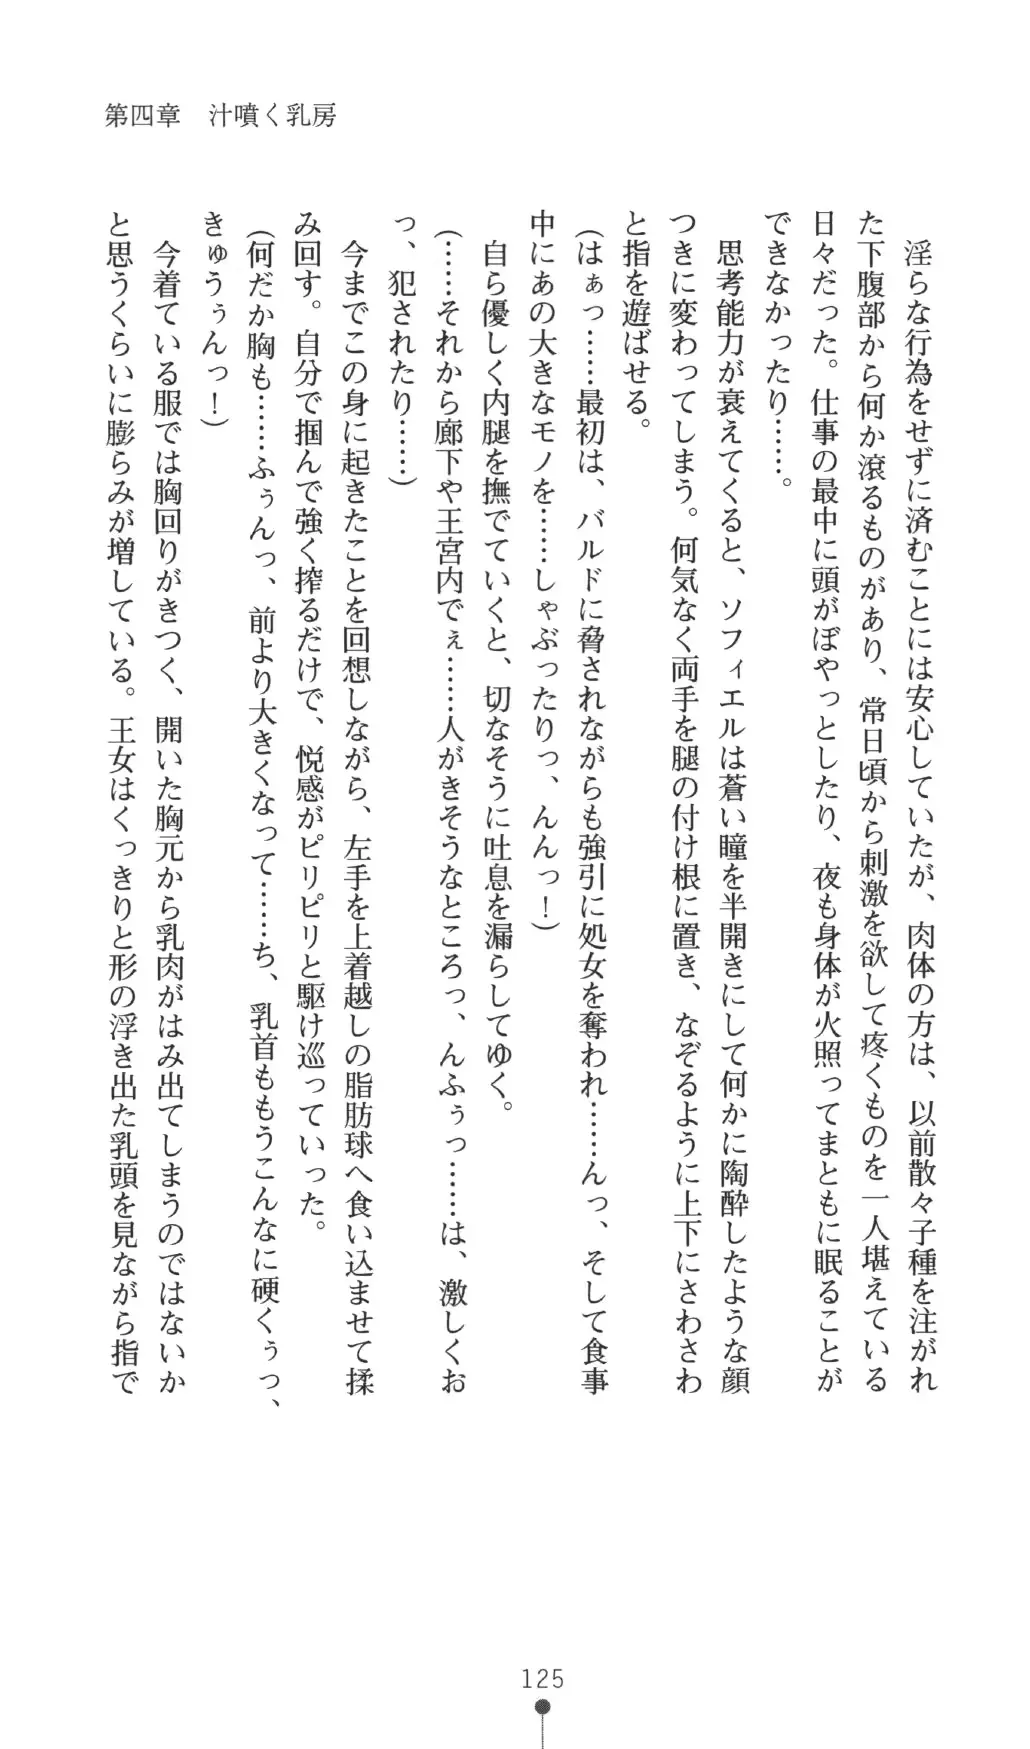 第四章　汁噴く乳房
　淫らな行為をせずに済むことには安心していたが、肉体の方は、以前散々子種を注がれ
た下腹部から何か滾るものがあり、常日頃から刺激を欲して疼くものを一人堪えている
日々だった。仕事の最中に頭がぼやっとしたり、夜も身体が火照ってまともに眠ることが
できなかったり……。
　思考能力が衰えてくると、ソフィエルは蒼い瞳を半開きにして何かに陶酔したような顔
つきに変わってしまう。何気なく両手を腿の付け根に置き、なぞるように上下にさわさわ
と指を遊ばせる。
(はぁっ……最初は、バルドに脅されながらも強引に処女を奪われ……んっ、そして食事
中にあの大きなモノを……しゃぶったりっ、んんっ！)
　自ら優しく内腿を撫でていくと、切なそうに吐息を漏らしてゆく。
(……それから廊下や王宮内でぇ……人がきそうなところっ、んふぅっ……は、激しくお
っ、犯されたり……)
　今までこの身に起きたことを回想しながら、左手を上着越しの脂肪球へ食い込ませて揉
み回す。自分で掴んで強く搾るだけで、悦感がピリピリと駆け巡っていった。
(何だか胸も……ふぅんっ、前より大きくなって……ち、乳首ももうこんなに硬くぅっ、
きゅうぅんっ！)
　今着ている服では胸回りがきつく、開いた胸元から乳肉がはみ出てしまうのではないか
と思うくらいに膨らみが増している。王女はくっきりと形の浮き出た乳頭を見ながら指で
125